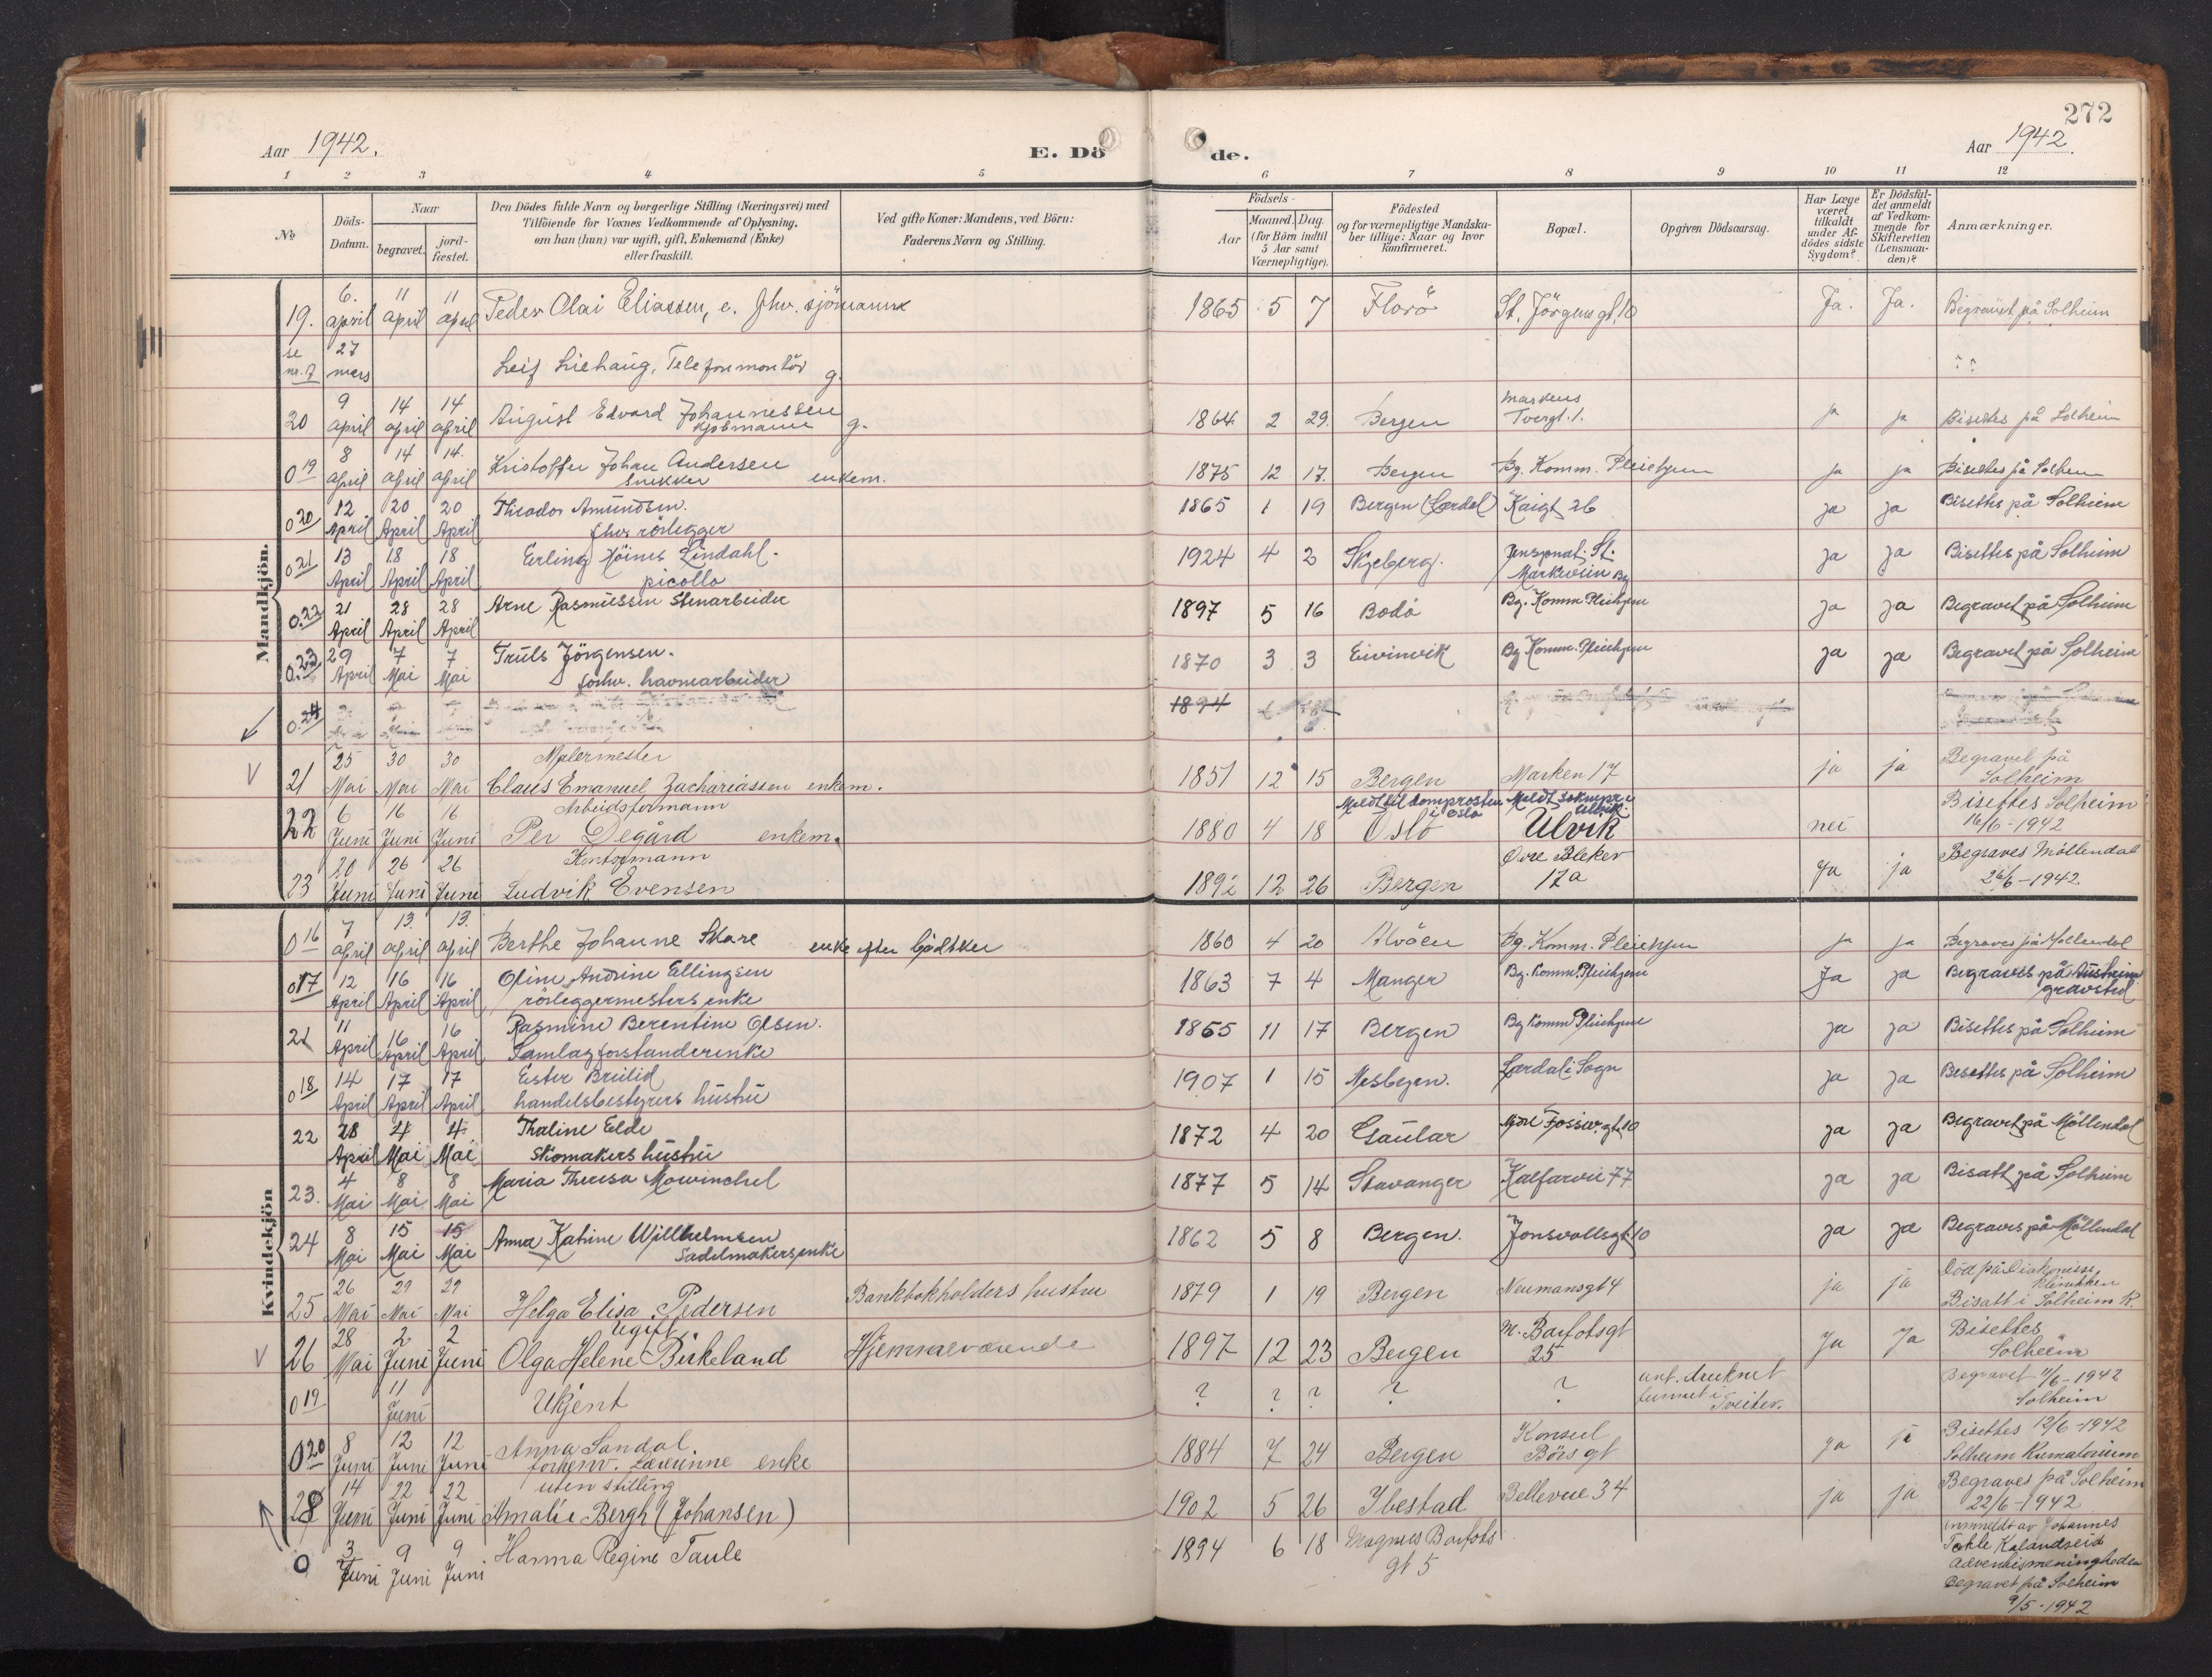 272
Aar 1942.
E. Döde.
Aar 1942.
1 2 3 4 5 6 7 8 9 10 11 12
№
Döds-Datum.
Naar
begravet.
jord-fæstet.
Den Dödes fulde Navn og borgerlige Stilling (Næringsvei) med
Tilföiende for Voxnes Vedkommende af Oplysning,
om han (hun) var ugift, gift, Enkemand (Enke)
eller fraskilt.
Ved gifte Koner: Mandens, ved Börn:
Faderens Navn og Stilling.
Födsels-
Aar
Maaned. Dag.
(for Börn indtil
5 Aar samt
Værnepligtige).
Födested
og for værnepligtige Mandska-
ber tillige: Naar og hvor
konfirmeret.
Bopæl.
Opgiven Dödsaarsag.
Har Læge
været
tilkaldt
under Af-
dödes sidste
Sygdom?
Er Dödsfal-
det anmeldt
af Vedkom-
mende for
Skifteretten
(Lensman-
den)?
Anmærkninger.
Mandkjön.
19. 6. april 11 april 11 april Peder Olai Eliassen, e. fhv. sjömann 1865 5 7 Florö St. Jörgensgt. 10 Ja. Ja. Begravet på Solheim
se nr. 7 27 mars Leif Liehaug, Telefonmontör g. ? ?
20 9 april 14 april 14 april August Edvard Johannessen g.
Kjöbmann 1864 2 29. Bergen Markens Tvergt. 1. ja ja Bisettes på Solheim
0 19 8 april 14 april 14. april Kristoffer Johan Andersen
Snekker enkem. 1875 12 17. Bergen Bg. Komm. Pleiehjem ja ja Bisettes på Solheim
0 20 12 April 20 April 20 April Theodor Amundsen.
fhv. rörlegger 1865 1 19 Bergen (Lærdal) Kaigt 26 ja ja Bisettes på Solheim
0 21 13 April 18 April 18 April Erling Höines Lindahl.
picollo 1924 4 2 Skjeberg. Pensjonat. St. Markevein Bg ja ja Bisettes på Solheim
0.22 21 April 28 April 28 April Arne Rasmussen Stenarbeider 1897 5 16 Bodö Bg. Komm. Pleiehjem ja ja Begravet på Solheim
0.23 29 April 7 Mai 7 Mai Truls Jörgensen.
forhv. havnearbeider 1870 3 3 Eivinvik Bg Komm. Pleiehjem ja ja Begravet på Solheim
0.24 1894
21 25 Mai 30 Mai 30 Mai Malermester
Claus Emanuel Zachariassen enkem. 1851 12 15 Bergen Marken 17 ja ja Begravet på Solheim
22 6 Juni 16 Juni 16 Juni Arbeidsformann
Per Degård enkem. 1880 4 18 Meldt til domprosten i Oslo Oslo Meldt soknepr. i Ulvik. Ulvik nei Bisettes Solheim 16/6-1942
23 20 Juni 26 Juni 26 Juni Kontormann
Ludvik Evensen 1892 12 26 Bergen Övre Bleker 17a Ja ja Begraves Möllendal 26/6-1942
Kvindekjön
0 16 7 april 13. april 13. april Berthe Johanne Skare enke efter bödtker 1860 4 20 Alvöen Bg. Komm. Pleiehjem ja ja Begraves på Möllendal
0 17 12 April 16 April 16 April Oline Andrine Ellingsen
rörleggermesters enke 1863 7 4 Manger Bg. Komm. Pleiehjem Ja ja Begraves på gravsted
21 11 April 16 April 16 April Rasmine Berentine Olsen.
Samlagforstanderenke 1865 11 17 Bergen Bg Komm Pleiehjem ja ja Bisettes på Solheim
0 18 14 April 17 April 17 April Ester Breilid
handelsbestyrers hustru 1907 1 15 Nesbyen. Lærdal i Sogn ja ja Bisettes på Solheim
22 28 April 4 Mai 4 Mai Thaline Elde
Skomakers hustru 1872 4 20 Gaular 10 ja ja Begravet på Möllendal
23. 4 Mai 8 Mai 8 Mai Maria Theresa Mowinckel 1877 5 14 Stavanger Kalfarvei 77 ja ja Bisatt på Solheim
24 8 Mai 15 Mai 15 Mai Anna Katrine Willhelmsen
Sadelmakersenke 1862 5 8 Bergen. Jonsvollsgt 10 ja ja Begraves på Möllendal
25 26 Mai 29 Mai 29 Mai Helga Elisa Pedersen Bankbokholders hustru 1879 1 19 Bergen Neumansgt 4 ja ja Död på Diakonisse klinikken
Bisatt i Solheim K.
26 28 Mai 2 Juni 2 Juni Ugift
Olga Helene Birkeland Hjemmeværende 1897 12 23 Bergen M. Barfotsgt 25 Ja Ja Bisettes Solheim
0 19 11 Juni Ukjent ? ? ? ? ? ant. druknet funnet i Tveitev. Begravet 11/6-1942 Solheim
0 20 8 Juni 12 Juni 12 Juni Anna Sandal.
forhenv. Lærerinne enke 1884 7 24 Bergen Konsul Börs gt ja ja Bisettes 12/6-1942
Solheim Krematorium
28 14 Juni 22 Juni 22 Juni uten stilling
Amalie Bergh (Johansen) 1902 5 26 Ibestad Bellevue 34 ja ja Begraves på Solheim 22/6-1942
0 3 Juni 9 Juni 9 Juni Hanna Regine Taule 1894 6 18 Magnus Barfots gt 5 innmeldt av Johannes
Tokle Kalandseid
Adventismenigheden
Begravet på Solheim
9/5-1942